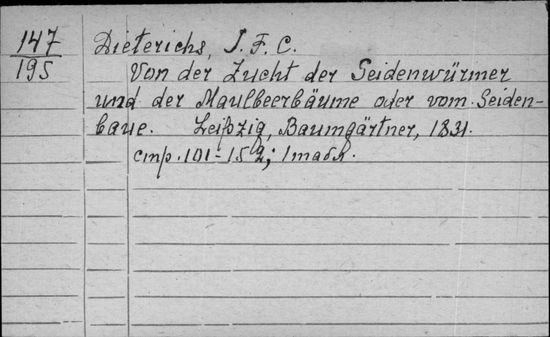 147
195
Dieterichs, J. F. C.
Von der Zucht der Seidenwürmer
und der Maulbeerbäume oder vom Seiden-
baue. Leipzig, Baumgärtner, 1831.
стр. 101-152; 1 табл.